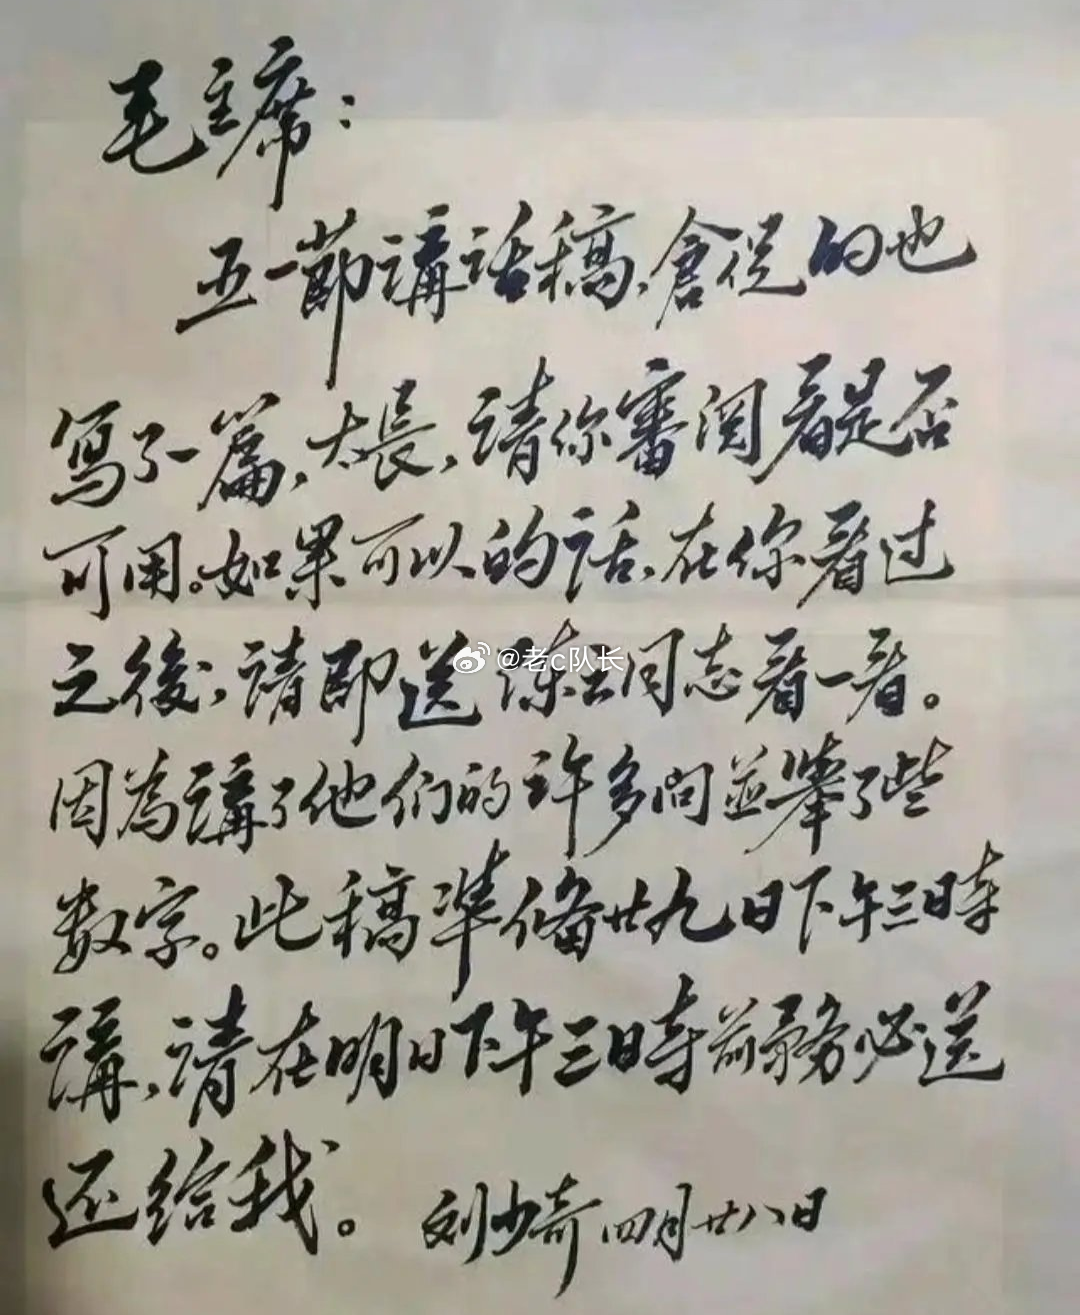 毛主席：
五一節講話稿、倉促的也
寫了一篇，太長，請你審閱看是否
可用。如果可以的話，在你看过
之後，請即送陈云同志看一看。
@老c队长
因為講了他们的許多问並舉了些
数字。此稿準备廿九日下午三時
講，請在明日下午三時前務必送
还给我。
刘少奇 四月廿八日